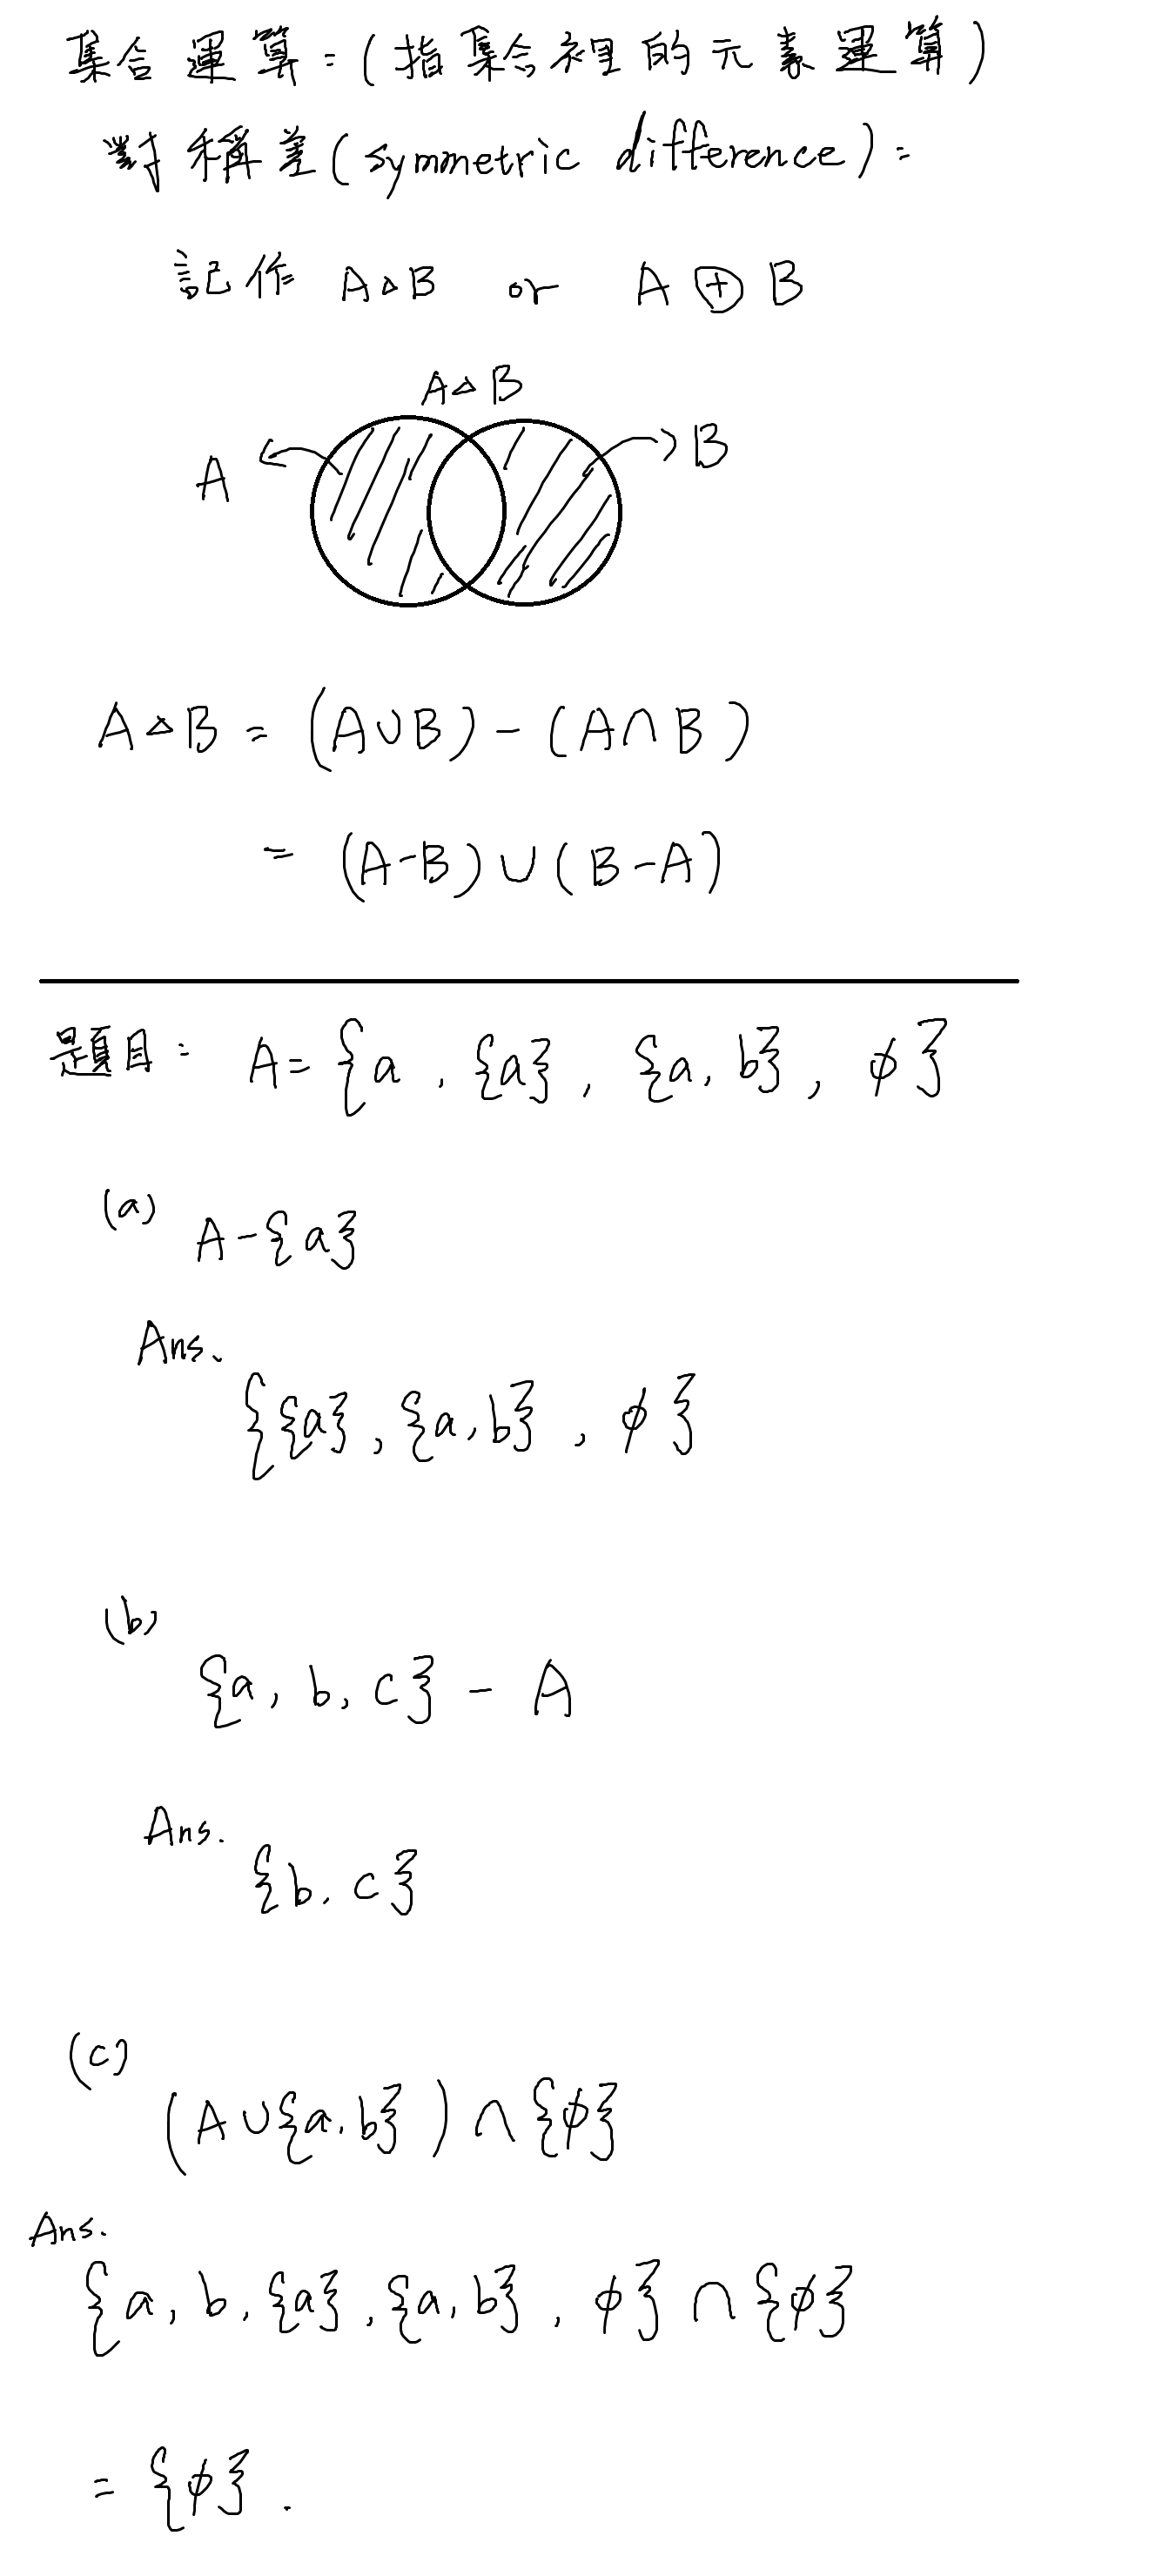 集合運算：(指集合裡的元素運算)
對稱差(symmetric difference)：
記作 A△B or A⊕B
A△B
A
B
A△B = (A∪B)-(A∩B)
= (A-B)∪(B-A)
題目： A={a, {a}, {a, b}, ϕ}
(a)
A-{a}
Ans.
{{a}, {a, b}, ϕ}
(b)
{a, b, c} - A
Ans.
{b, c}
(c)
(A∪{a, b})∩{ϕ}
Ans.
{a, b, {a}, {a, b}, ϕ}∩{ϕ}
= {ϕ}.